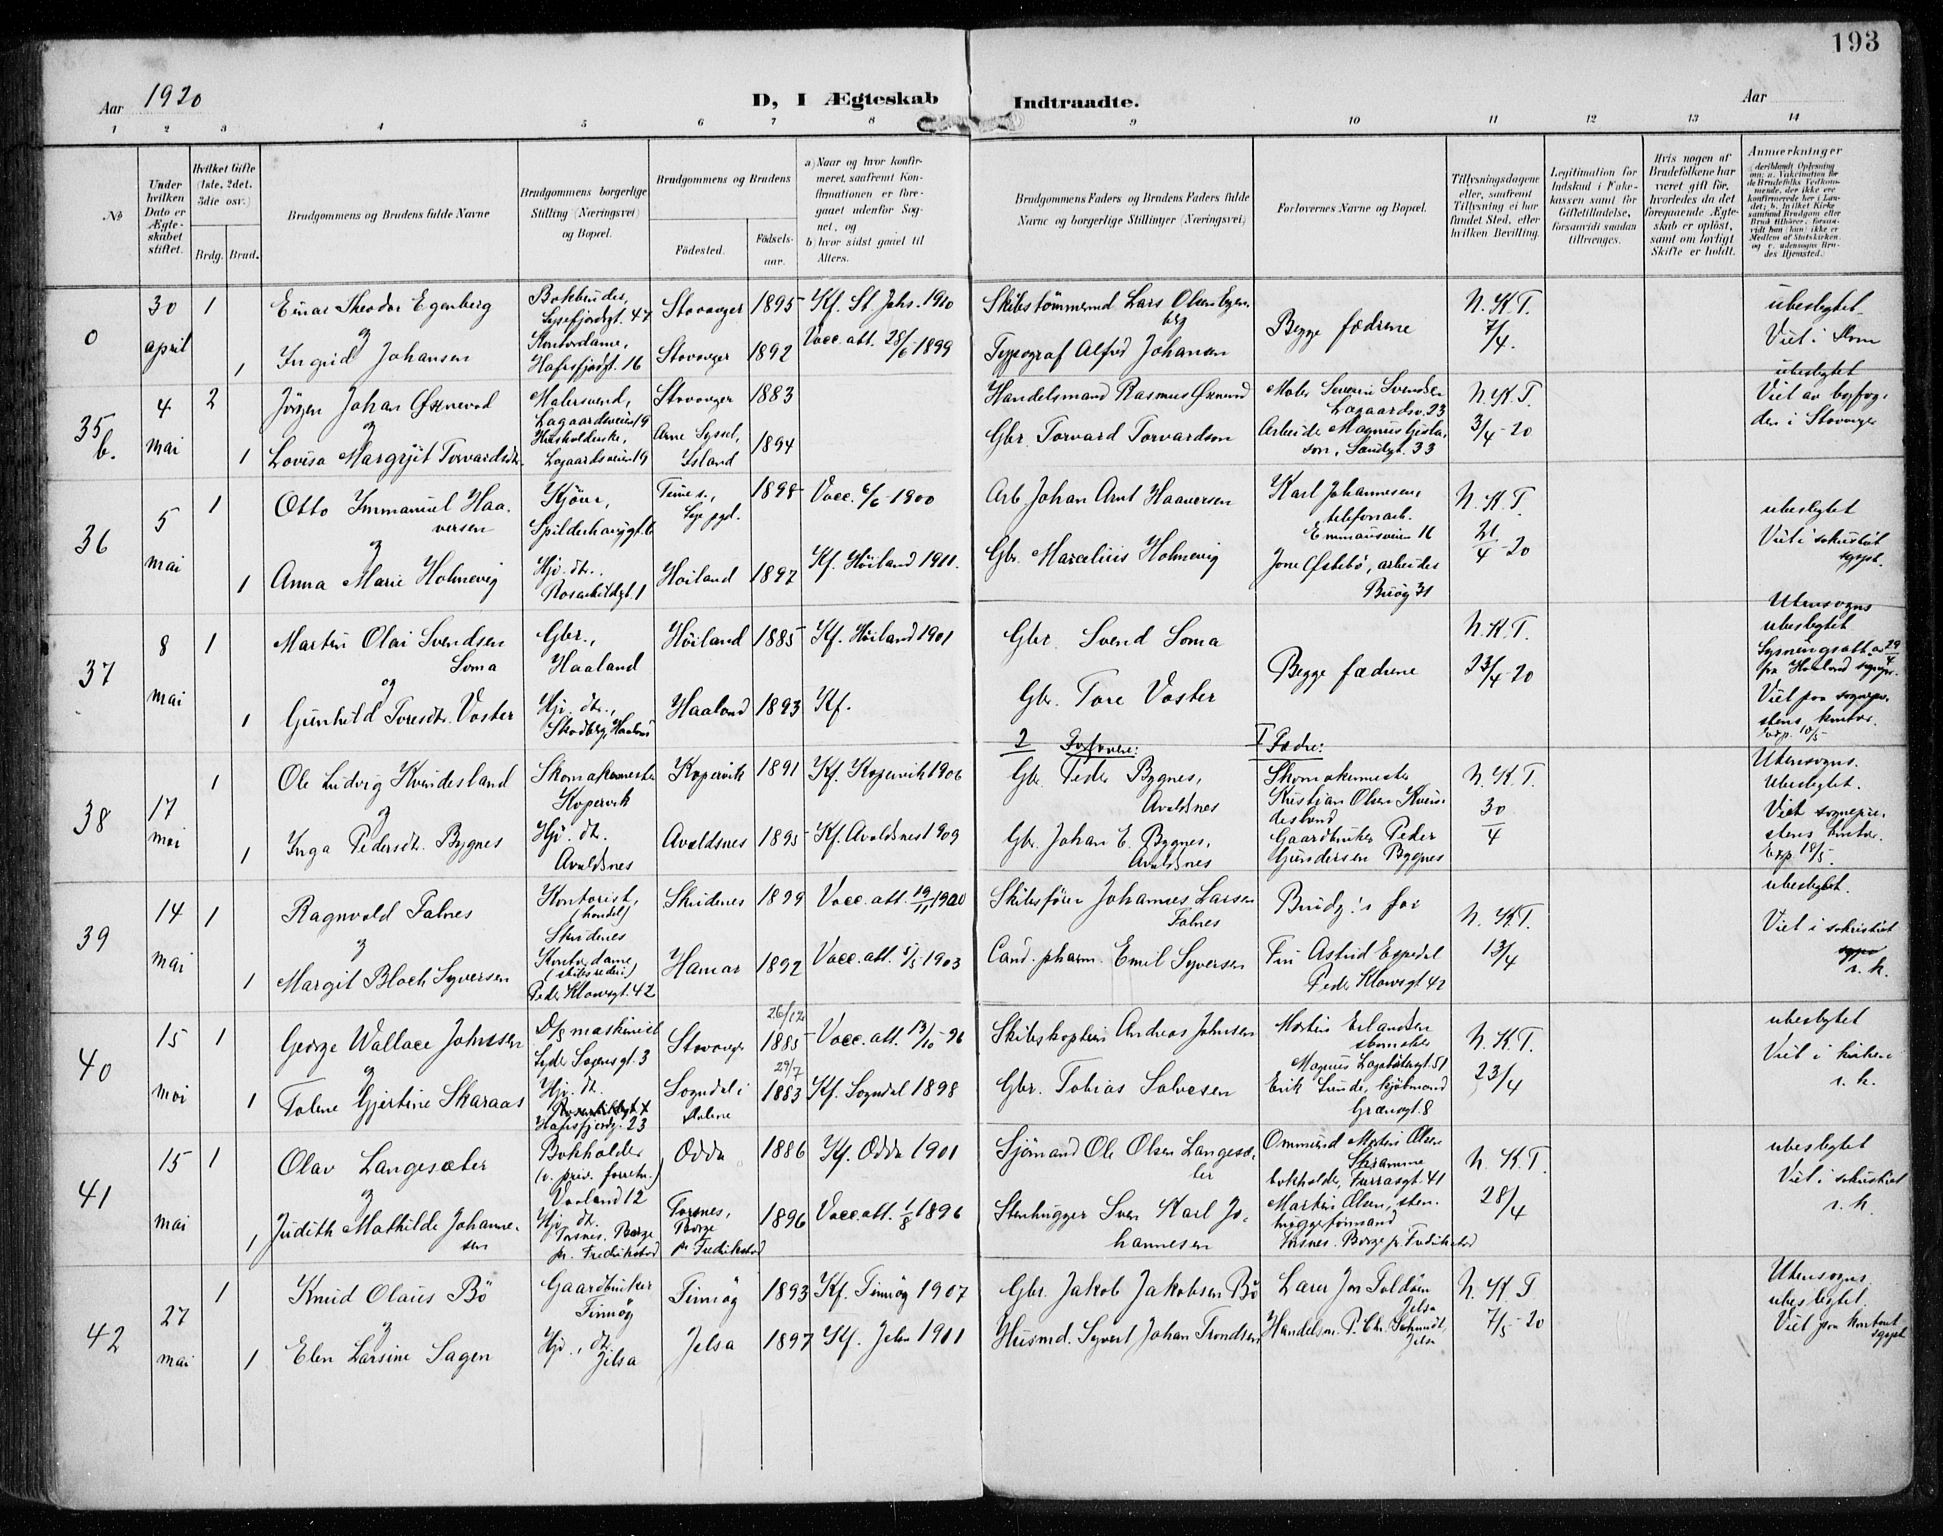 193
Aar 1920
D, I Ægteskab Indtraadte.
Aar
1 2 3 4 5 6 7 8 9 10 11 12 13 14
No
Under hvilken Dato er Ægteskabet stiftet.
Hvilket Gifte (1ste, 2det, 3die osv.)
Brdg. Brud.
Brudgommens og Brudens fulde Navne
Brudgommens borgerlige Stilling (Næringsvei) og Bopæl.
Brudgommens og Brudens
Fødested.
Fødselsaar.
a) Naar og hvor konfirmeret, saafremt Konfirmationen er foregaaet udenfor Sognet, og
b) hvor sidst gaaet til Alters.
Brudgommens Faders og Brudens Faders fulde Navne og borgerlige Stillinger (Næringsvei)
Forlovernes Navne og Bopæl.
Tillysningsdagene eller, saafremt Tillysning ei har fundet Sted, efter hvilken Bevilling.
Legitimation for Indskud i Enkekassen samt for Giftetilladelse, forsaavidt saadan tiltrænges.
Hvis nogen af Brudefolkene har været gift før, hvorledes da det foregaaende Ægteskab er opløst, samt om lovligt Skifte er holdt.
Anmærkninger
0
30 april
1
Einar Theodor Egenberg
Lysefjordgt. 47
Stavanger 1895
Kf. St. Joh. 1910
Skibstømmermd Lars Olsen Egenberg
Begge fædrene
N. K. T.
7/4.
ubeslegtet
Viet i
og
1
Ingrid Johansen
Kontordame,
Hafrsfjordgt. 16
Stavanger 1892
Vacc. att. 28/6 1899
Typograf Alfred Johansen
35 b.
4 mai
2
Jörgen Johan Øxnevad
Malersvend,
Lagaardsveien 19
Stavanger 1883
Handelsmand Rasmus Øxnevad
Maler Severin Svendsen
Lagaardsv. 23
N. K. T.
3/4 - 20
ubeslegtet
Viet av byfogden i Stavanger
og
1
Lovisa Margrjit Torvardsdtr.
Husholderske,
Lagaardsveien 19
Arne Syssel,
Island 1894
Gbr. Torvard Torvardson
Arbeider Magnus Gislason, Sandgt. 33
36
5 mai
1
Otto Immanuel Haaversen
Kjører,
Spilderhaugsgt. 6
Time s.,
Lye pgd. 1898
Vacc. 6/6 1900
Arb. Johan Arnt Haaversen
Karl Johannesen,
telefonarb.
Emmausveien 16
N. K. T.
21/4 - 20
ubeslegtet
Viet i sakristiet
sgpst.
og
1
Anna Marie Holmevig
Hjv. dtr.
Rosenkildegt. 1
Høiland 1897
Kf. Høiland 1911.
Gbr. Marselius Holmevig
Jone Østebø, arbeider
Buøy 31
37
8 mai
1
Martin Olai Svendsen Soma
Gbr.,
Haaland
Høiland 1885
Kf. Høiland 1901
Gbr. Svend Soma
Begge fædrene
N. K. T.
23/4 - 20
Utensogns
ubeslegtet
Lysningsatt. av 29/4
fra Haaland sognepr.
Viet paa sogneprestens kontor.
Exp. 10/5
og
1
Gunhild Toresdtr. Voster
Hjv. dtr.,
Skadberg, Haaland
Haaland 1893
Kf.
Gbr. Tore Voster
2 Forlovere: I Fædre:
38
17 mai
1
Ole Ludvig Kvindesland
Skomakermester
Kopervik
Kopervik 1891
Kf. Kopervik 1906
Gbr. Peder Bygnes,
Avaldsnes
Skomakermester
Kristian Olsen Kvindesland
N. K. T.
30/4
Utensogns.
Ubeslegtet.
Viet sogneprestens kontor.
Exp. 18/5.
og
1
Inga Pedersdtr. Bygnes
Hjv. dtr.
Avaldsnes
Avaldsnes 1895
Kf. Avaldsnes 1909
Gbr. Johan E. Bygnes,
Avaldsnes
Gaardbruker Peder
Gundersen Bygnes
39
14 mai
1
Ragnvald Falnes
Kontorist,
(handel)
Skudenes
Skudenes 1899
Vacc. att. 19/11 1900
Skibsfører Johannes Larsen Falnes
Brudg.'s far
N. K. T.
13/4
ubeslegtet.
Viet i sakristiet
r. k.
og
1
Margit Bloch Syversen
Kontordame,
(skibsrederi)
Peder Klowsgt. 42
Hamar 1892
Vacc. att. 5/5 1903
Cand. pharm. Emil Syversen
Frk. Astrid Espedal
Peder Klowsgt 42
40
15 mai
1
George Wallace Johnsen
D/s maskinist
Lyder Sagensgt. 3
Stavanger
26/12 1885
Vacc. att. 13/10 - 96
Skibskaptein Andreas Johnsen
Martin Erlandsen
skomaker
Magnus Lagabøtersgt. 51
N. K. T.
23/4
ubeslegtet
Viet i kirken
r. k.
og
1
Tolene Gjertine Skaraas
Hjv. dt.
Hafrsfjordg. 23
Sogndal i
Dalene
29/7 1883
Kf. Sogndal 1898
Gbr. Tobias Salvesen
Erik Lunde, kjøbmand
Grænsegt. 8
41
15 mai
1
Olav Langesæter
Bokholder
(v. priv. forretn.)
Vaaland 12
Odda 1886
Kf. Odda 1901
Sjømand Ole Olsen Langesæter
Ommund Martin Olsen
Skramme
bokholder, Furrasgt. 41
N. K. T.
28/4
ubeslegtet
Viet i sakristiet
r. k.
og
1
Judith Mathilde Johannesen
Hjv. dt.
Torsnes, Borge
pr. Fredrikstad
Torsnes,
Borge
pr Fredrikstad 1896
Vacc. att. 1/8 1896
Stenhugger Sven Karl Johannesen
Martin Olsen, stenhuggeformand
Torsnes. Borge pr. Fredrikstad
42
27 mai
1
Knud Olaus Bø
Gaardbruker
Finnøy
Finnøy 1893
Kf. Finnøy 1907
Gbr. Jakob Jakobsen Bø
Lærer Jon Foldøen
Jelsa
N. K. T
7/5 - 20
Utensogns
ubeslegtet.
Viet paa kontoret
sgpst.
og
1
Elen Larsine Sagen
Hjv., dtr.
Jelsa
Jelsa 1897
Kf. Jelsa 1911
Husmd. Syvert Johan Trondsen
Handelsm. P. Chr. Schmidt,
Jelsa